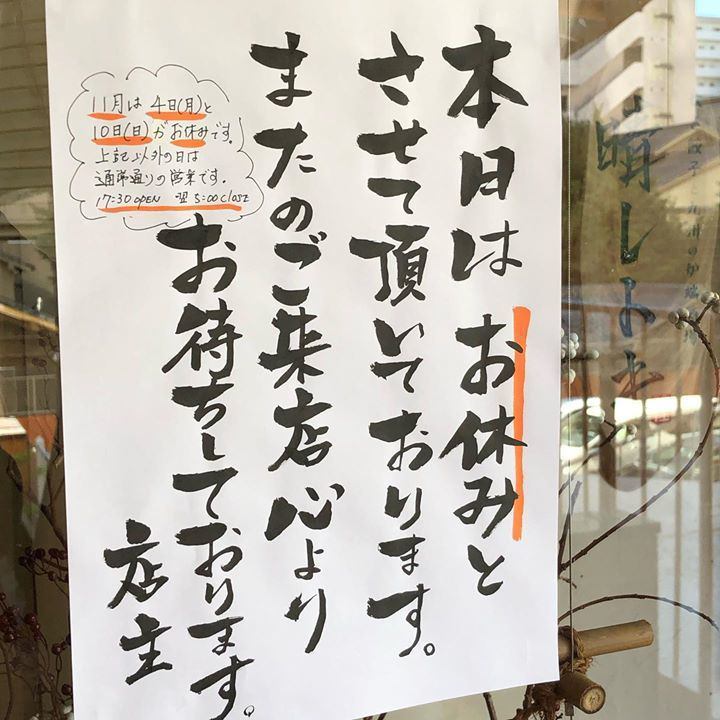 本日はお休みと
させて頂いております。
またのご来店心より
お待ちしております。
店主
11月は4日(月)と
10日(日)がお休みです。
上記以外の日は
通常通りの営業です。
17:30 OPEN 翌5:00 CLOSE
晴レトキ